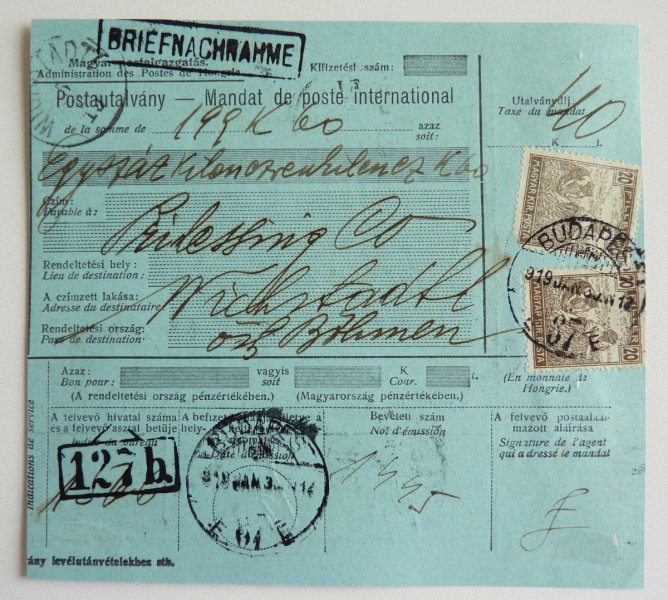 BRIEFNACHNAHME
Magyar postaigazgatás.
Administration des Postes de Hongrie
Kifizetési szám:
Postautalvány — Mandat de poste international
de la somme de 199 K 60 azaz soit:
Utalványdíj
Taxe du mandat
40
K f.
Egyszáz kilenczvenkilencz K 60
Czím:
Payable à:
Co
Rendeltetési hely:
Lieu de destination:
A czímzett lakása:
Adresse du destinataire:
Wichstadtl
Rendeltetési ország:
Pays de destination:
Böhmen
20 FILLÉR 20
MAGYAR KIR. POSTA
BUDAPEST
919 JAN 3
20 FILLÉR 20
MAGYAR KIR. POSTA
Azaz:
Bon pour:
vagyis
soit
K
Cour.
f.
c.
(A rendeltetési ország pénzértékében.)
(Magyarország pénzértékében.)
(En monnaie de Hongrie.)
Indications de service
A felvevő hivatal száma
és a felvevő asztal betűje
Indic. du bureau
127 b.
A befizetés helye
Date d'émission
BUDAPEST
919 JAN 3
Bevételi szám
No. d'émission
A felvevő postaalkalmazott aláírása
Signature de l'agent
qui a dressé le mandat
ány levélutánvételekhez stb.